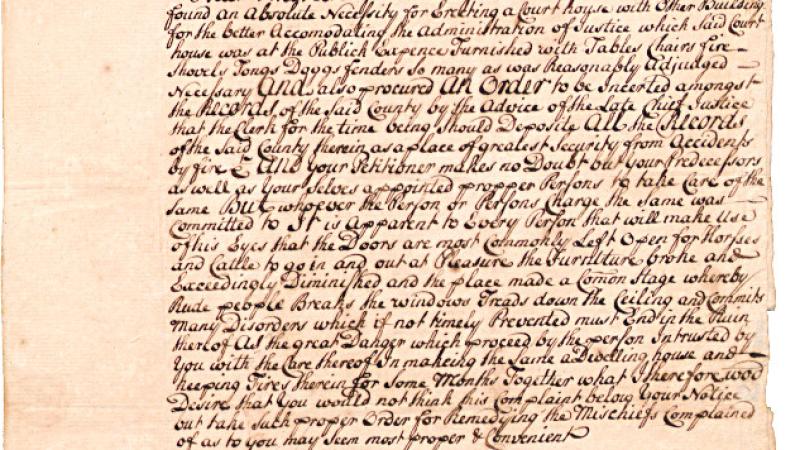 found an Absolute Necessity for Erecting a Court house with Other Building
for the better Accomodating the Administration of Justice which Said Court
house was at the Publick Expence Furnished with Tables Chairs fire
Shovels Tongs Doggs fenders So many as was Reasonably Adjudged
Necessary And also procured An Order to be Incerted amongst
the Records of the Said County by the Advice of the Late Chief Justice
that the Clerk for the time being Should Deposite All the Records
of the Said County therein as a place of greatest Security from Accidents
by fire & And your Petitioner makes no Doubt but your Predecessors
as well as your Selves appointed propper Persons to take Care of the
Same But whoever the Person or Persons Charge the Same was
Committed to It is Apparent to Every Person that will make Use
of his Eyes that the Doors are most Commonly Left Open for Horses
and Cattle to go in and out at Pleasure the Furniture broke and
Exceedingly Diminished and the place made a Comon Stage whereby
Rude people Breaks the windows Treads down the Ceiling and Commits
many Disorders which if not timely Prevented must End in the Ruin
therof As the great Danger which proceed by the person Intrusted by
You with the Care thereof In makeing the Same a Dwelling house and
keeping Fires therein for Some Months Together what I therefore wod
Desire that You would not think this Complaint below Your Notice
but take Such proper Order for Remedying the Mischiefs Complained
of as to you may Seem most proper & Convenient